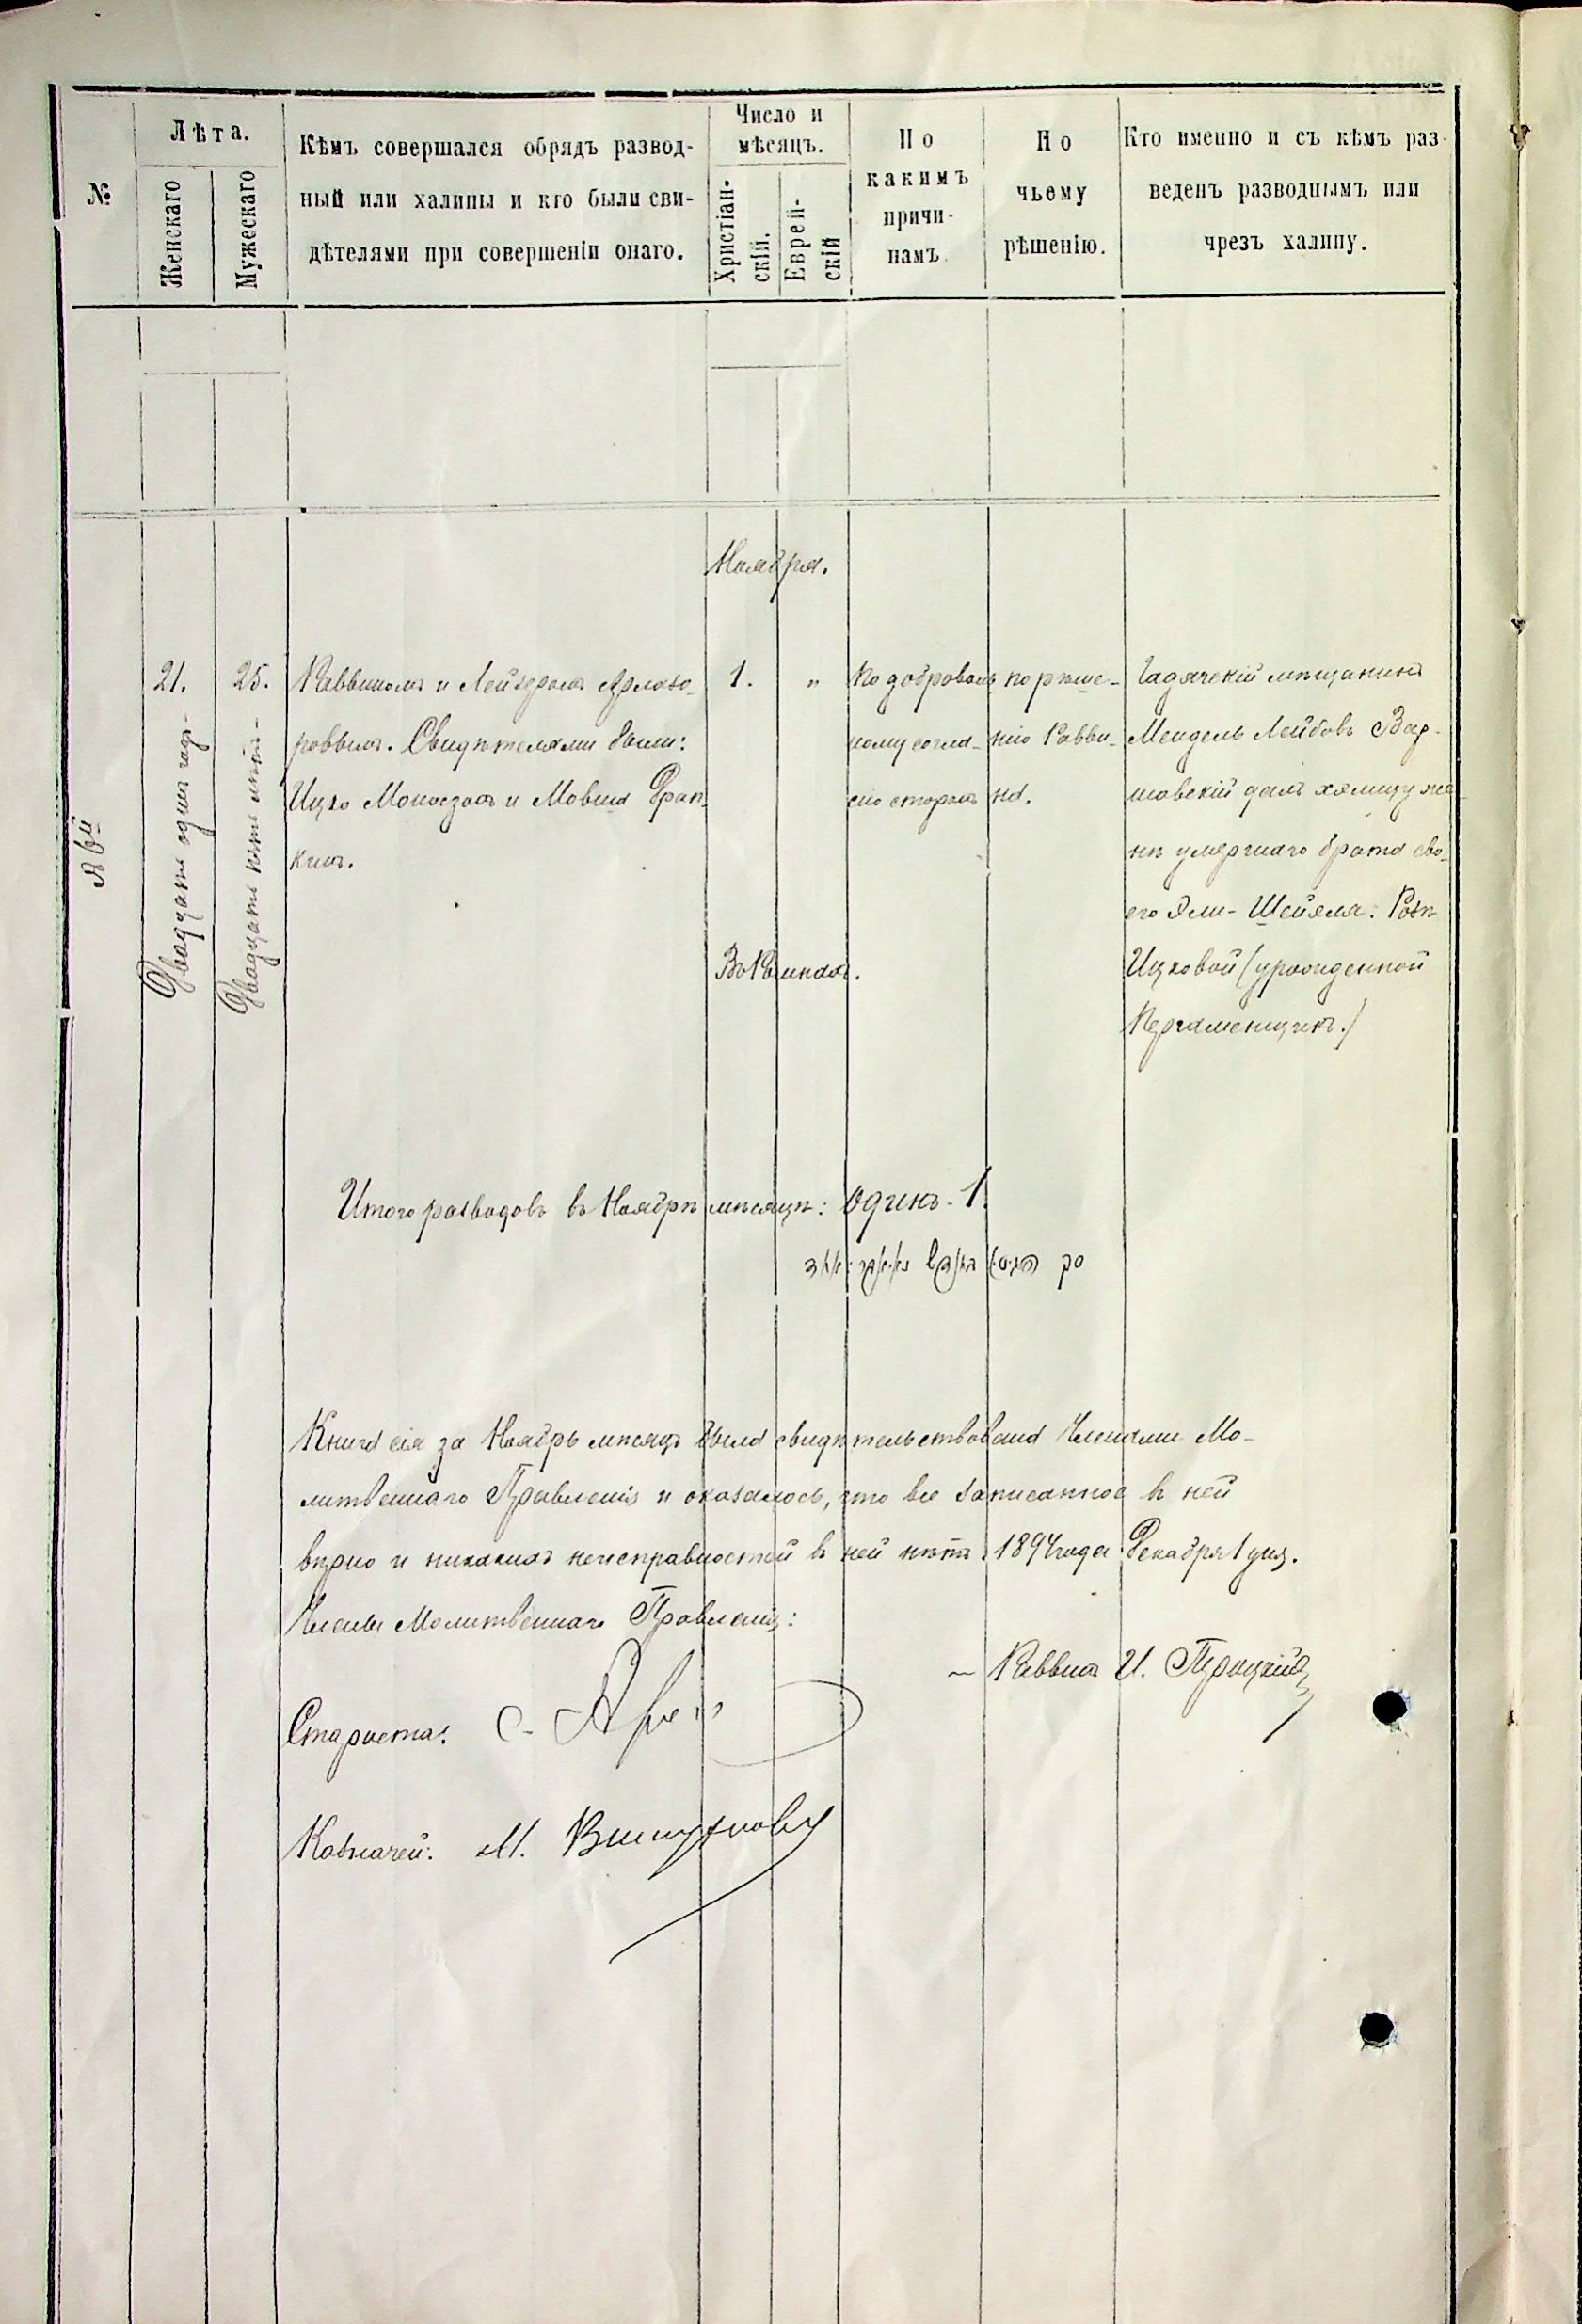 №
Лѣта.
Женскаго
Мужескаго
Кѣмъ совершался обрядъ развод-
ный или халицы и кто были сви-
дѣтелями при совершеніи онаго.
Число и
мѣсяцъ.
Христіан-
скій.
Еврей-
скій
По
какимъ
причи-
намъ.
По
чьему
рѣшенію.
Кто именно и съ кѣмъ раз-
веденъ разводнымъ или
чрезъ халицу.
Ноября.
21.
Двадцать одинъ годъ
25.
Двадцать пять лѣтъ
Раввиномъ и Лейзеромъ Арлазо-
ровымъ. Свидѣтелями были:
Ицко Монасзонъ и Мовша Фран-
кинъ.
1.
"
По добровол
ному согла-
сію сторонъ
по рѣше-
нію Равви-
на.
Гадячскій мѣщанинъ
Мендель Лейбовъ Вар-
шавскій далъ халицу же-
нѣ умершаго брата сво-
его Эли-Шейеля: Розѣ
Ицковой (урожденной
Пергаменщикъ.)
Итого разводовъ въ Ноябрѣ мѣсяцѣ: Одинъ-1.
Книга сія за Ноябрь мѣсяцъ была свидѣтельствована Членами Мо-
литвеннаго Правленія и оказалось, что все записанное въ ней
вѣрно и никакихъ неисправностей въ ней нѣтъ. 1894 года Декабря 1 дня.
Члены Молитвеннаго Правленія:
Раввинъ И.
Староста: С.
Казначей: М.